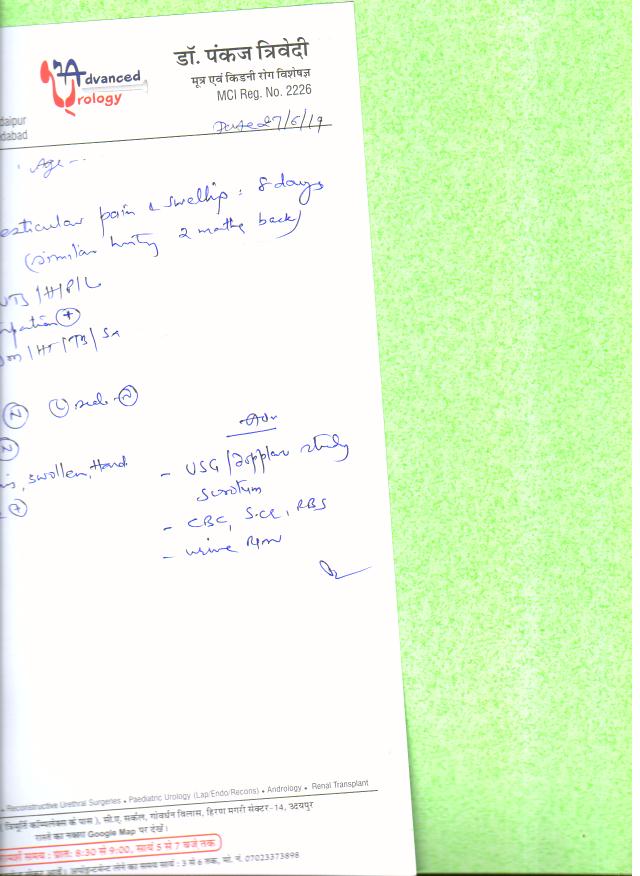 Advanced
Urology
डॉ. पंकज त्रिवेदी
मूत्र एवं किडनी रोग विशेषज्ञ
MCI Reg. No. 2226
daipur
dabad
Date 27/6/19
Age -
esticular pain & swelling : 8 days
(similar history 2 months back)
UTS/H/P/L
ipation (+)
om/HT/TB/SA
(N) (L) side - (N)
(N)
swollen, Hard
(+)
Adv
- USG/Doppler study
scrotum
- CBC, S.Cr, RBS
- urine R/M
• Reconstructive Urethral Surgeries • Paediatric Urology (Lap/Endo/Recons) • Andrology • Renal Transplant
(त्रिमूर्ति कॉम्पलेक्स के पास), सी.ए. सर्कल, गोवर्धन विलास, हिरण मगरी सेक्टर-14, उदयपुर
रास्ते का नक्शा Google Map पर देखें।
समय : प्रातः 8:30 से 9:00, सायं 5 से 7 बजे तक
आवें। अपोइन्टमेन्ट लेने का समय सायं : 3 से 6 तक, मो. नं. 07023373898